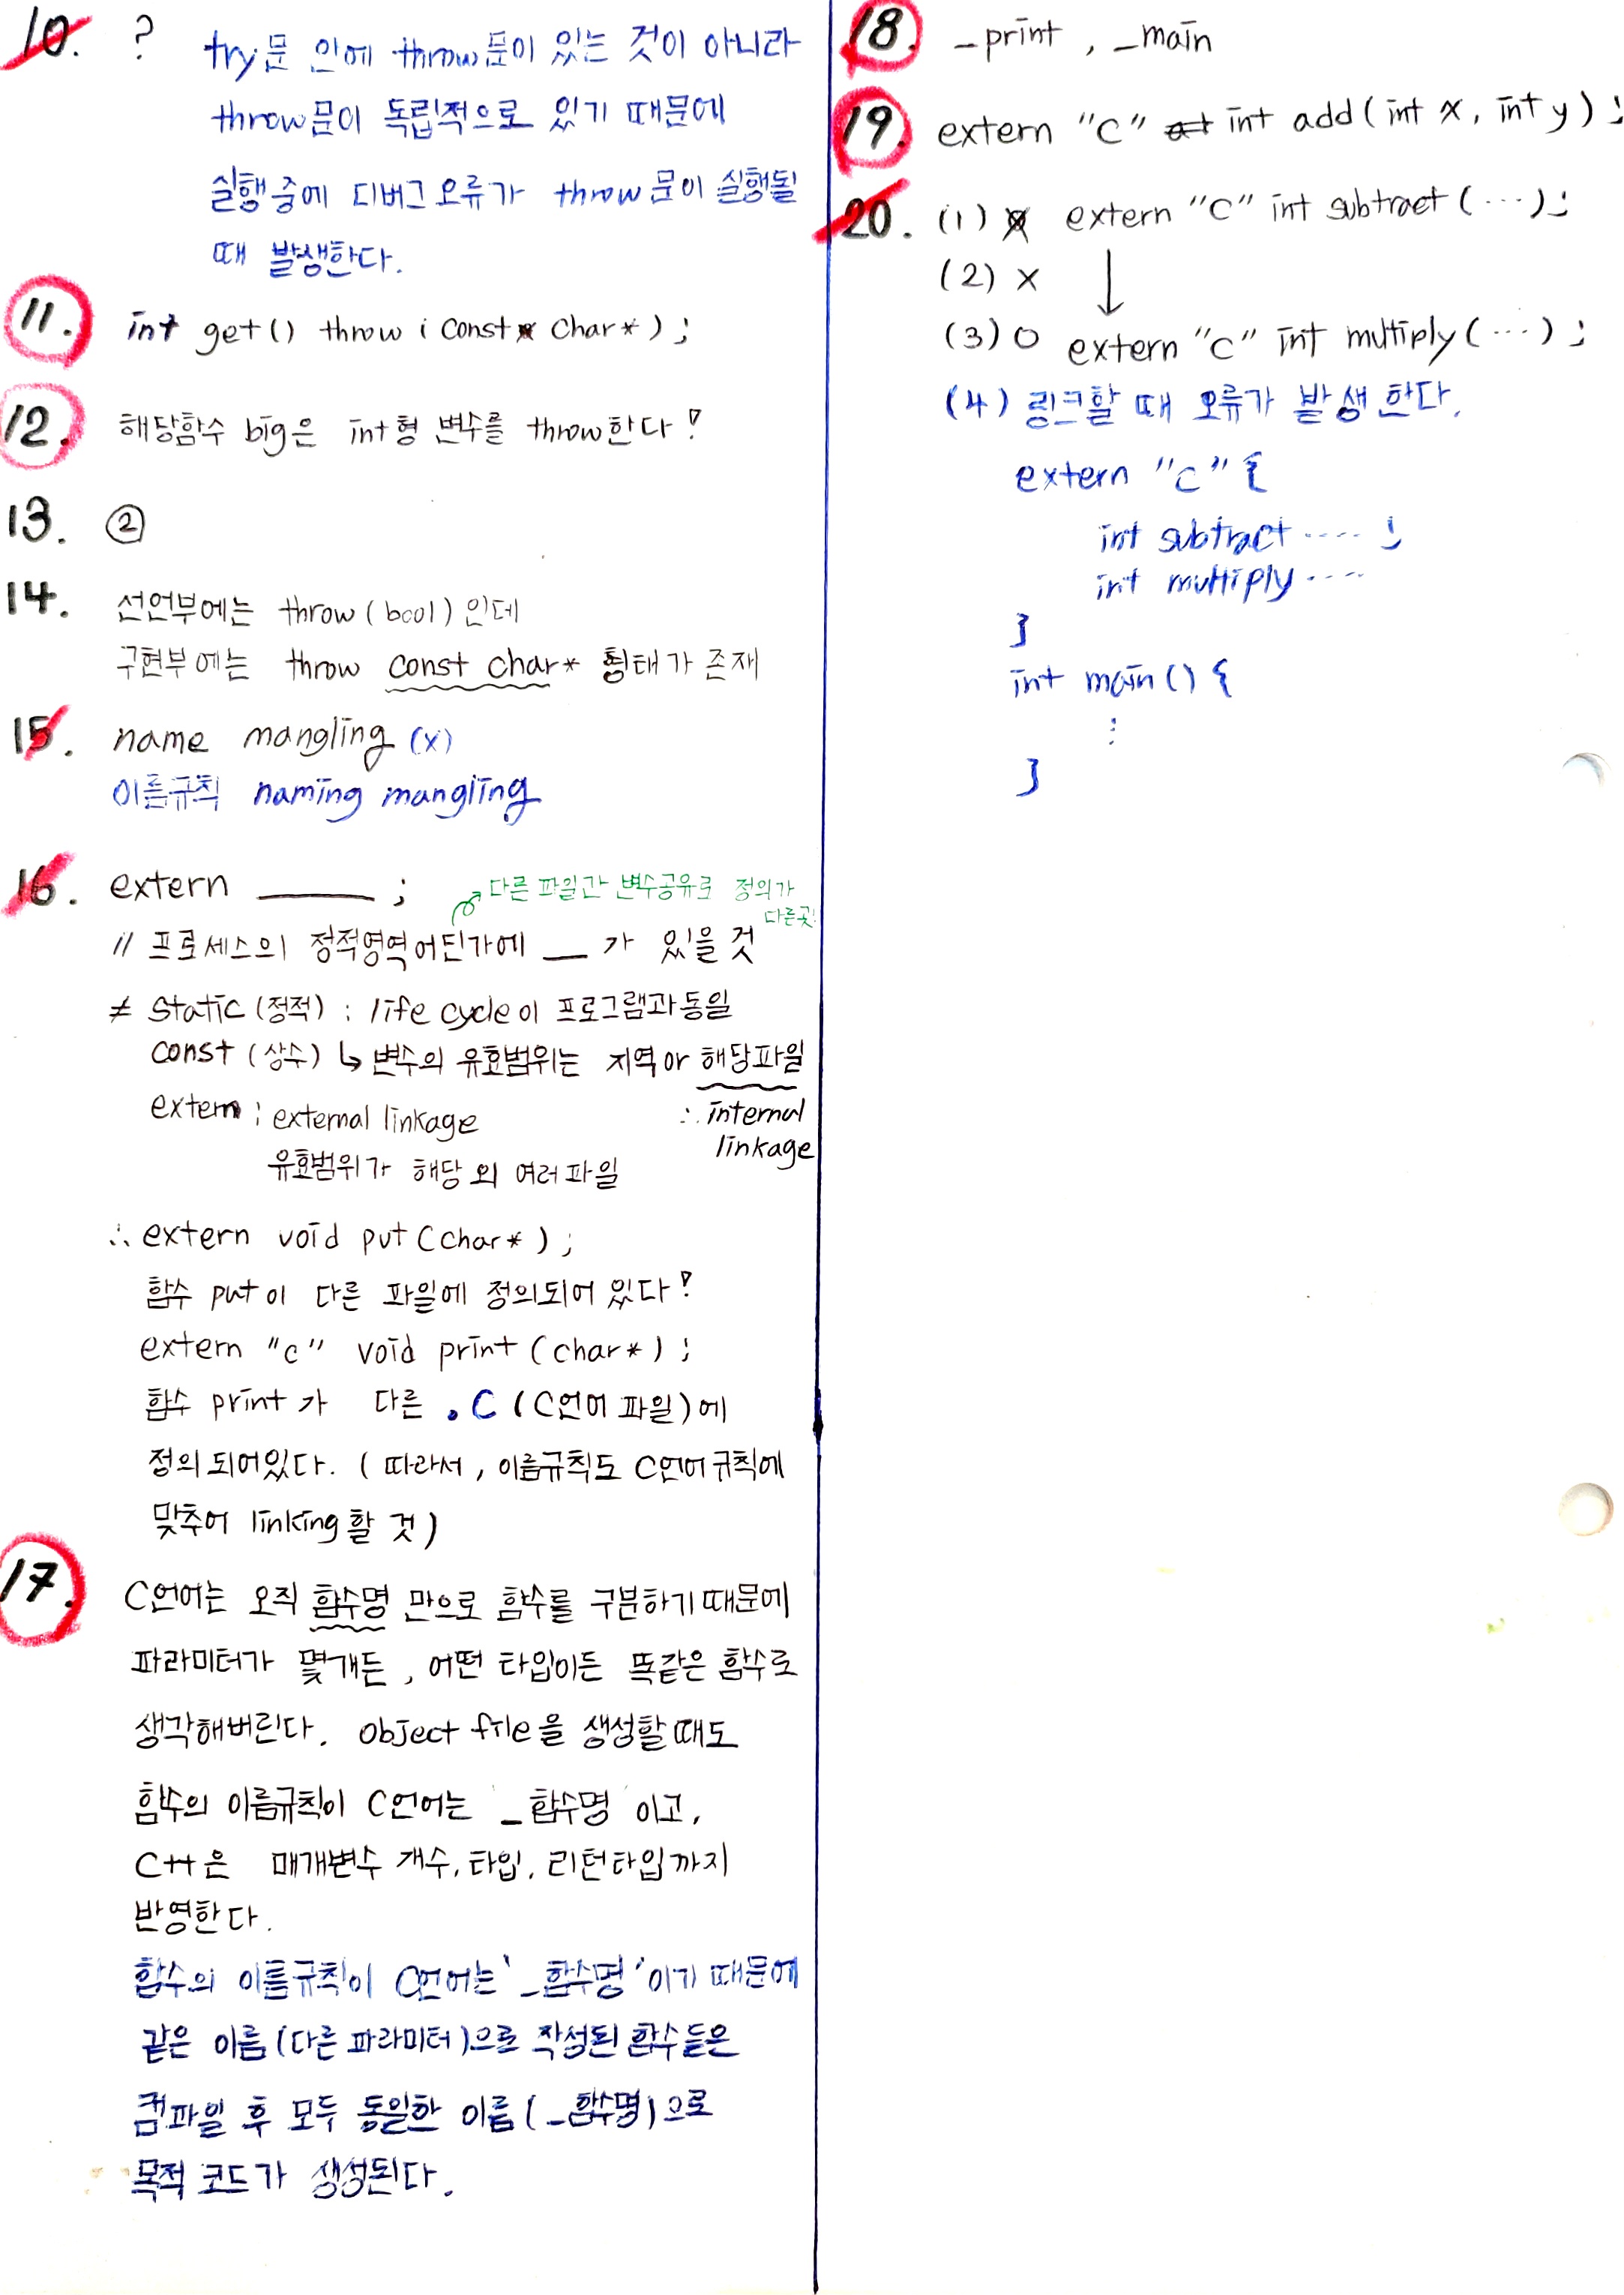 10. ? try문 안에 throw문이 있는 것이 아니라
throw문이 독립적으로 있기 때문에
실행 중에 디버그 오류가 throw 문이 실행될
때 발생한다.
11. int get() throw (const char*);
12. 해당함수 big은 int형 변수를 throw한다!
13. ②
14. 선언부에는 throw(bool)인데
구현부에는 throw const char* 형태가 존재
15. name mangling (x)
이름규칙 naming mangling
16. extern ____ ;
다른 파일간 변수공유로 정의가
다른곳!
// 프로세스의 정적영역 어딘가에 __ 가 있을 것
≠ static (정적) : life cycle이 프로그램과 동일
const (상수) ↳ 변수의 유효범위는 지역 or 해당파일
∴ internal
linkage
extern : external linkage
유효범위가 해당 외 여러파일
∴ extern void put(char*);
함수 put이 다른 파일에 정의되어 있다!
extern "C" void print(char*);
함수 print가 다른 .C (C언어 파일)에
정의되어있다. (따라서, 이름규칙도 C언어 규칙에
맞추어 linking할 것)
17. C언어는 오직 함수명 만으로 함수를 구분하기 때문에
파라미터가 몇개든, 어떤 타입이든 똑같은 함수로
생각해버린다. object file을 생성할 때도
함수의 이름규칙이 C언어는 '_함수명'이고,
C++은 매개변수 개수, 타입, 리턴타입까지
반영한다.
함수의 이름규칙이 C언어는 '_함수명'이기 때문에
같은 이름(다른 파라미터)으로 작성된 함수들은
컴파일 후 모두 동일한 이름(_함수명)으로
목적 코드가 생성된다.
18. _print , _main
19. extern "C" int add(int x, int y);
20. (1) X extern "C" int subtract(...);
(2) X ↓
(3) O extern "C" int multiply(...);
(4) 링크할 때 오류가 발생한다.
extern "C" {
int subtract ....;
int multiply ....
}
int main() {
⋮
}